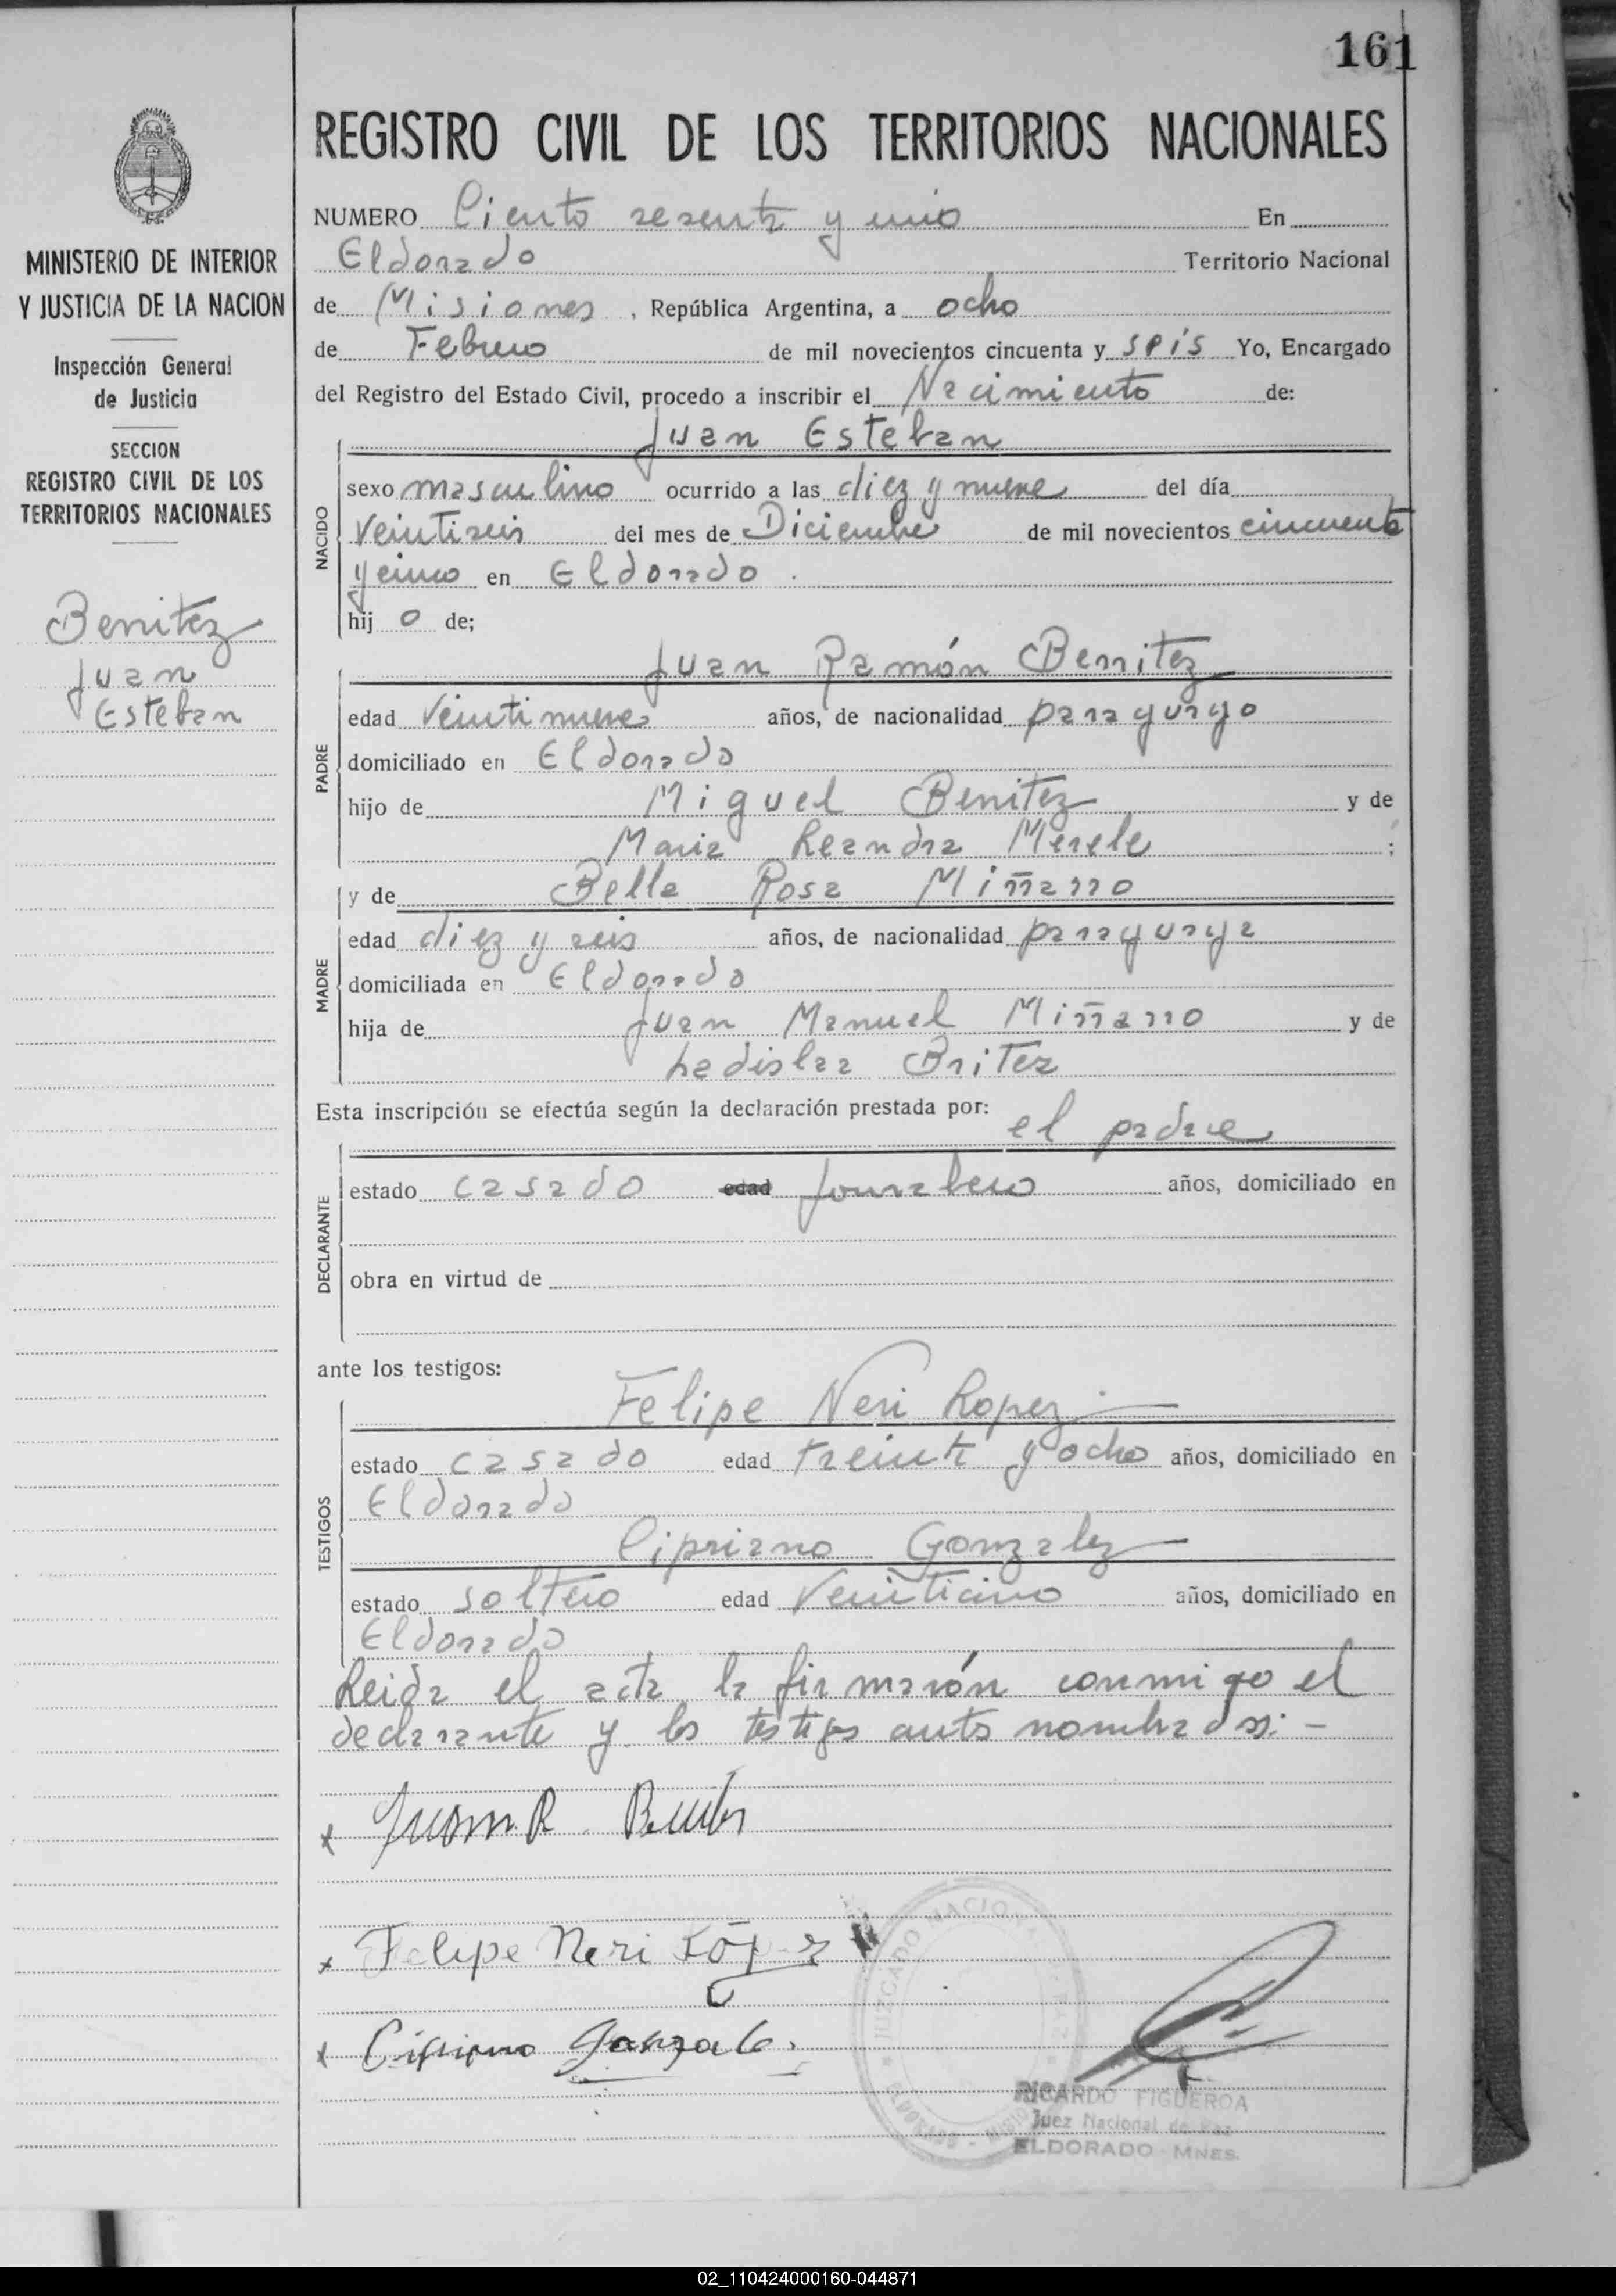 161
REGISTRO CIVIL DE LOS TERRITORIOS NACIONALES
MINISTERIO DE INTERIOR
Y JUSTICIA DE LA NACION
Inspección General
de Justicia
SECCION
REGISTRO CIVIL DE LOS
TERRITORIOS NACIONALES
Benitez
Juan
Esteban
NUMERO Ciento sesenta y uno En
Eldorado Territorio Nacional
de Misiones, República Argentina, a ocho
de Febrero de mil novecientos cincuenta y seis Yo, Encargado
del Registro del Estado Civil, procedo a inscribir el Nacimiento de:
Juan Esteban
NACIDO
sexo masculino ocurrido a las diez y nueve del día
Veintiseis del mes de Diciembre de mil novecientos cincuenta
y cinco en Eldorado.
hij o de;
Juan Ramón Benitez
PADRE
edad Veintinueve años, de nacionalidad paraguayo
domiciliado en Eldorado
hijo de Miguel Benitez y de
Maria Leandra Merele ;
y de Bella Rosa Miñarro
MADRE
edad diez y seis años, de nacionalidad paraguaya
domiciliada en Eldorado
hija de Juan Manuel Miñarro y de
Ladislaa Britez
Esta inscripción se efectúa según la declaración prestada por: el padre
DECLARANTE
estado casado edad Jornalero años, domiciliado en
obra en virtud de
ante los testigos:
Felipe Neri Lopez
TESTIGOS
estado casado edad treinta y ocho años, domiciliado en
Eldorado
Cipriano Gonzalez
estado soltero edad Veinticinco años, domiciliado en
Eldorado
Leida el acta la firmarón conmigo el
declarante y los testigos antes nombrados: -
x Juan R. Benitez
x Felipe Neri López
x Cipriano Gonzalez
JUZGADO NACIONAL
RICARDO FIGUEROA
Juez Nacional de Paz
ELDORADO MNES.
02_110424000160-044871